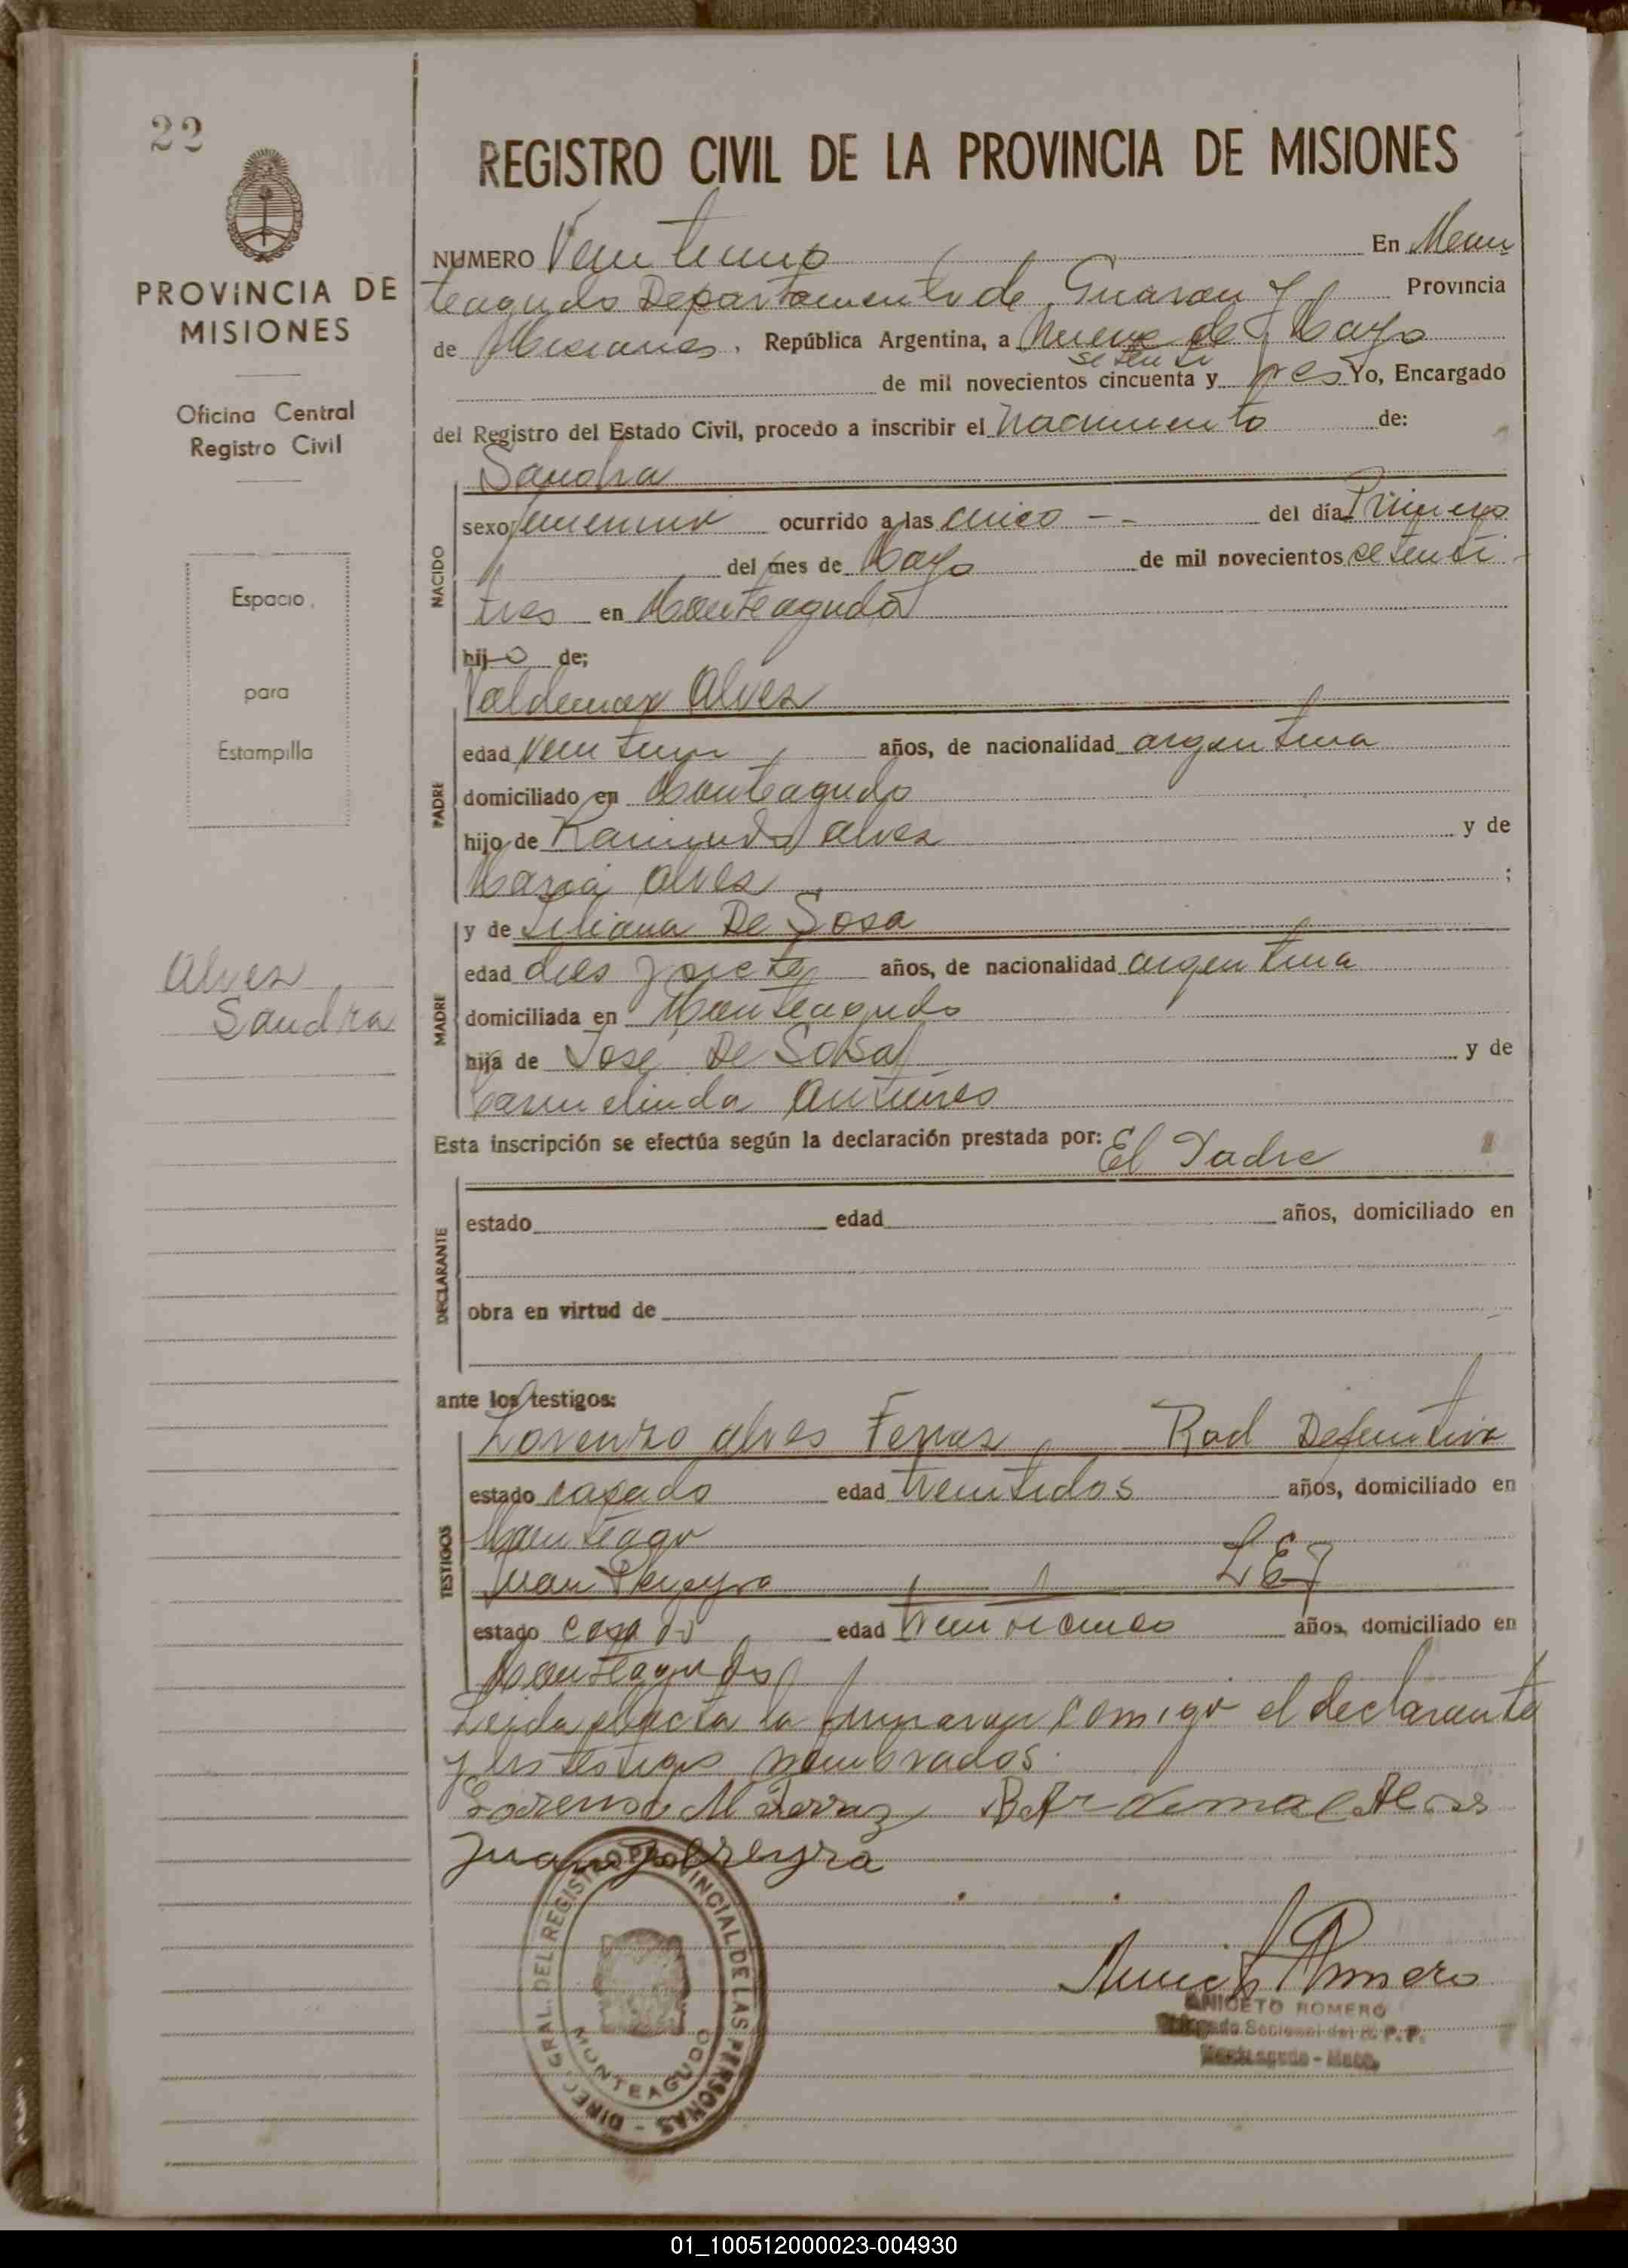 22
PROVINCIA DE
MISIONES
Oficina Central
Registro Civil
Espacio
para
Estampilla
Alvez
Sandra
REGISTRO CIVIL DE LA PROVINCIA DE MISIONES
NUMERO Veintiuno En Mon
teagudo Departamento de Guarani Provincia
de Misiones, República Argentina, a Nueve de Mayo
setenti
de mil novecientos cincuenta y tres Yo, Encargado
del Registro del Estado Civil, procedo a inscribir el Nacimiento de:
Sandra
NACIDO
sexo femenino ocurrido a las cinco - - del día Primero
del mes de Mayo de mil novecientos setenti
tres en Monteagudo
hijo de;
Valdemar Alvez
PADRE
edad Veintiun años, de nacionalidad argentina
domiciliado en Monteagudo
hijo de Raimundo Alvez y de
Maria Alves ;
MADRE
y de Liliana De Sosa
edad dies y siete años, de nacionalidad argentina
domiciliada en Monteagudo
hija de José De Sosa y de
Carmelinda Antunes
Esta inscripción se efectúa según la declaración prestada por: El Padre
DECLARANTE
estado edad años, domiciliado en
obra en virtud de
ante los testigos:
TESTIGOS
Lorenzo Alves Ferraz Rad Defenitiva
estado casado edad treintidos años, domiciliado en
Monteagu
Juan Pereyra L E 7
estado casado edad años, domiciliado en
Monteagudo
Leida el acta la firmaron comigo el declarante
y los testigos nombrados.
Lorenso M Ferraz
Juan pereyra
DIREC. GRAL. DEL REGISTRO PROVINCIAL DE LAS PERSONAS -
MONTEAGUDO
Aniceto Romero
ANICETO ROMERO
Encargado Seccional del R. P. P.
Monteagudo - Mnes.
01_100512000023-004930